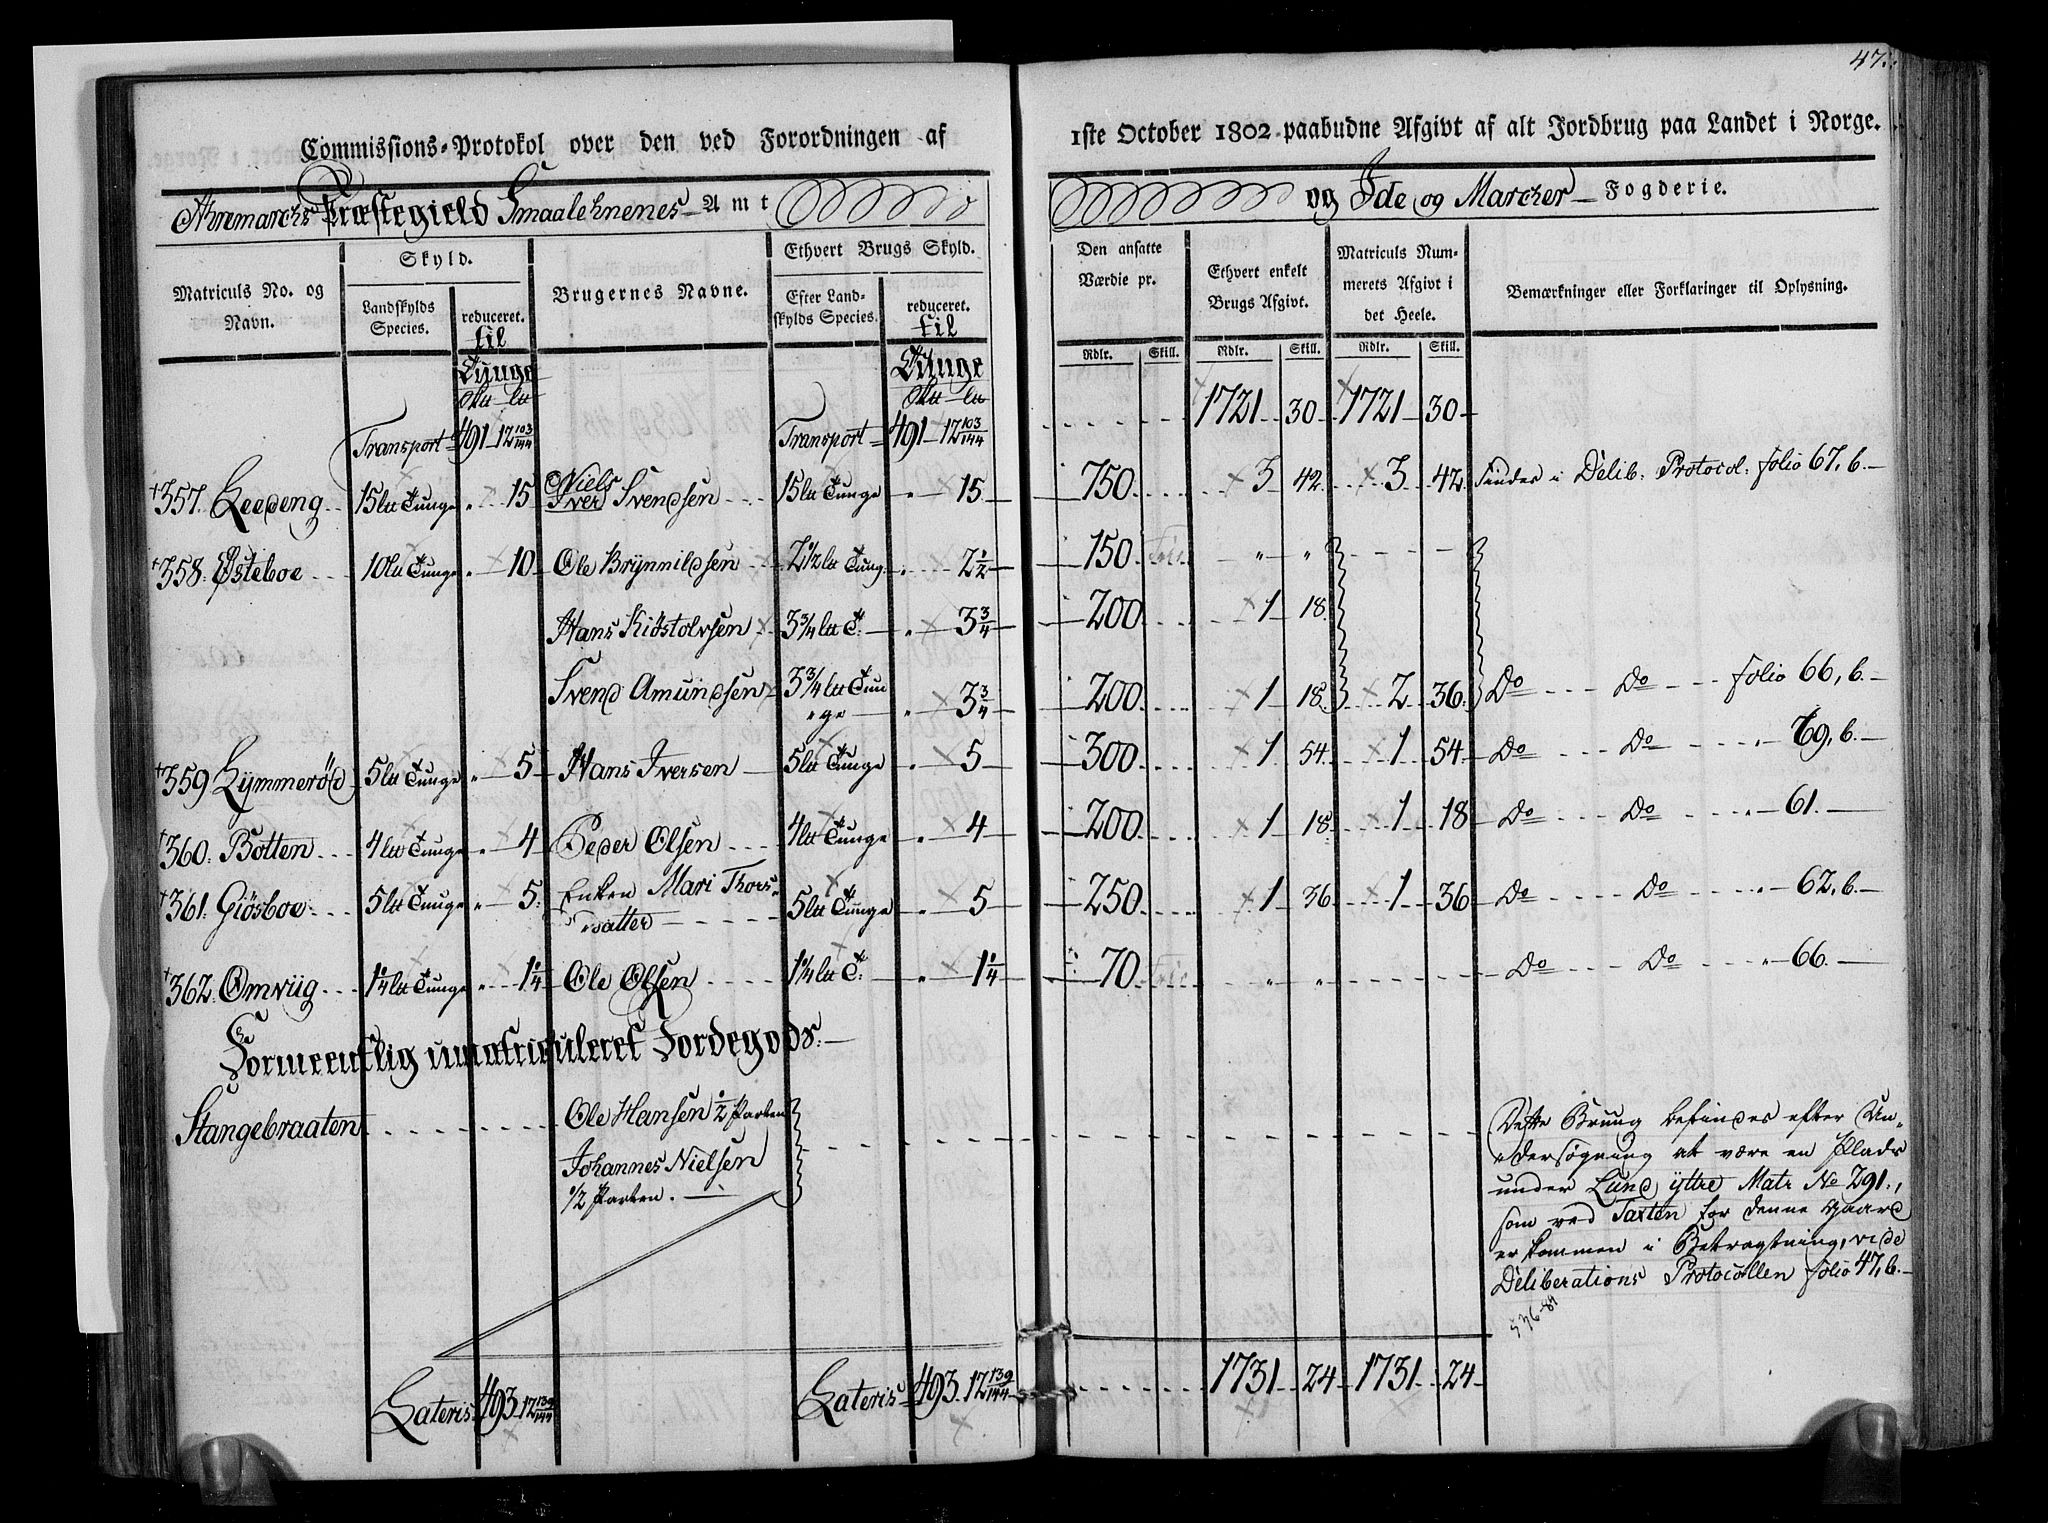 47.
Commissions-Protokol over den ved Forordningen af 1ste October 1802 paabudne Afgivt af alt Jordbrug paa Landet i Norge.
Præstegield Smaalehnenes Amt og Ide og Marcker Fogderie.
Matriculs No. og Navn. Skyld. Brugernes Navne. Ethvert Brugs Skyld. Den ansatte Værdie pr. Ethvert enkelt Brugs Afgivt. Matriculs Nummerets Afgivt i det Heele. Bemærkninger eller Forklaringer til Oplysning.
Landskylds Species. reduceret. til Tunge Efter Landskylds Species. reduceret. til Tunge Rdlr. Skill. Rdlr. Skill. Rdlr. Skill.
Transport 491 12 103/144 Transport 491 12 103/144 1721 30 1721 30
357. Leedeng 15 Tunge 15 Niels Iver Svendsen 15 Tunge 15 750 3 42 3 42 Findes i Delib: Protocol: folio 67, b.
358. Østeboe 10 Tunge 10 Ole Brynnildsen 2 1/2 Tung 2 1/2 150 Frie " "
Hans Kidstolvsen 3 3/4 T: 3 3/4 200 1 18
Svend Amundsen 3 3/4 Tun"ge 3 3/4 200 1 18 2 36 Do Do folio 66, b.
359 Lymmeröd 5 Tunge 5 Hans Iversen 5 Tunge 5 300 1 54 1 54 Do Do 69, b.
360. Botten 4 Tunge 4 Peder Olsen 4 Tunge 4 200 1 18 1 18 Do Do 61.
361. Giösboe 5 Tunge 5 Enken Mari Thors"datter 5 Tunge 5 250 1 36 1 36 Do Do 62, b.
362. Omviig 1 1/4 Tunge 1 1/4 Ole Olsen 1 1/4 T: 1 1/4 70 Frie " " Do Do 66.
Formeentlig umatriculeret Jordegods.
Stangebraaten Ole Hansen 1/2 Parten
Johannes Nielsen
1/2 Parten.
Dette Brug befindes efter Un"
"dersøgning at være en Plads
under Lund ÿttre Matr No 291.,
som ved Taxten for denne Gaard
er kommen i Betragtning, vide
Deliberations Protocollen folio 47, b.
Lateris 493 12 139/144 Lateris 493 12 139/144 1731 24 1731 24